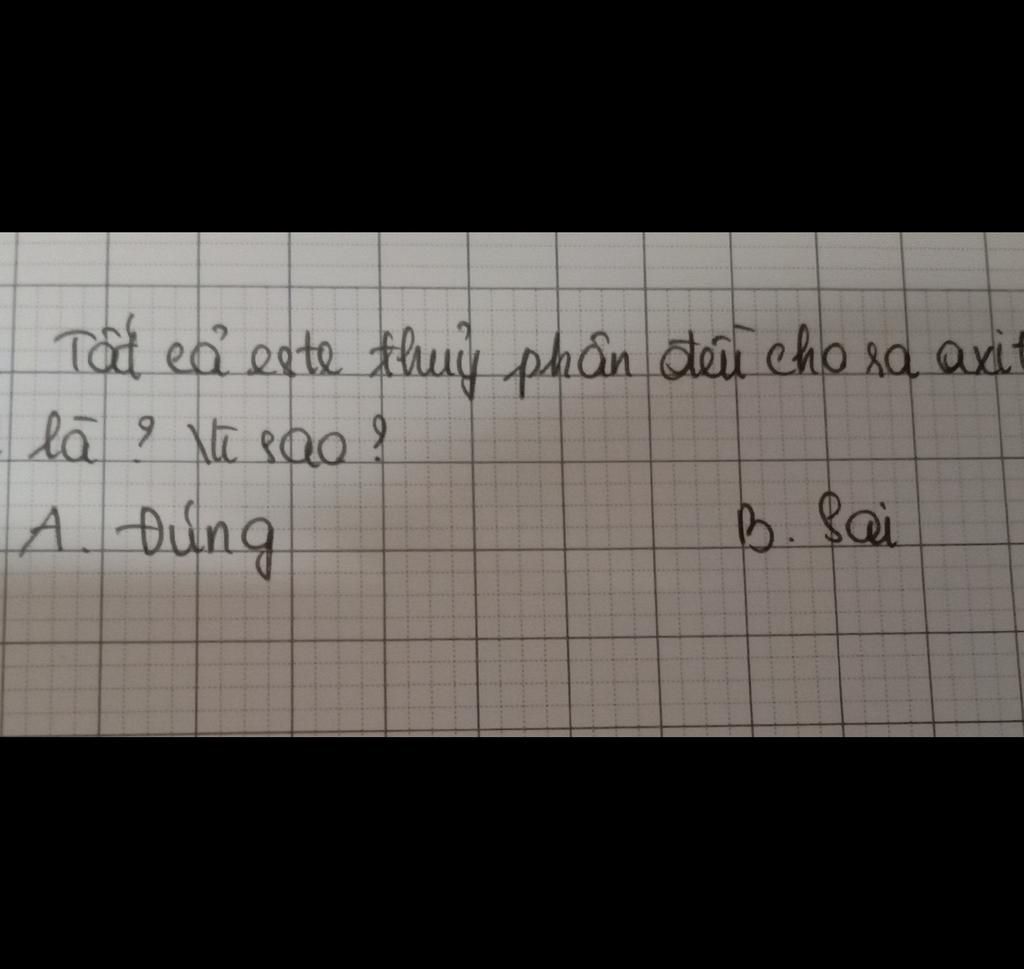 Tất cả este thuỷ phân đều cho ra axit
là ? Vì sao ?
A. Đúng B. Sai